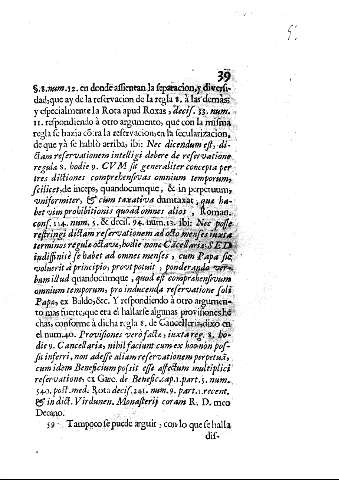 39
§.8. num.12. en donde assientan la separacion, y diversi-
dad; que ay de la reservacion de la regla 8. à las demàs:
y especialmente la Rota apud Roxas, decis. 33. num.
11. respondiendo à otro argumento, que con la misma
regla se hazia cõtra la reservacion, en la secularizacion,
de que yà se hablò arriba, ibi: Nec dicendum est, di-
ctam reservationem intelligi debere de reservatione
regula 8. hodie 9. CVM sit generaliter concepta per
tres dictiones comprehensivas omnium temporum,
scilicet, de inceps, quandocumque, & in perpetuum,
vniformiter, & cum taxativa dumtaxat, que ha-
bet vim prohibitionis quoad omnes alios, Roman.
cons. 114. num. 5. & decis. 94. num. 13. ibi: Nec posse
restringi dictam reservationem ad octo menses iuxta
terminos regule octave, hodie nonæ Cãcellariæ: SED
indiffiniè se habet ad omnes menses, cum Papa sic
voluerit à principio, prout potuit, ponderando ver-
bum illud quandocumque, quod est comprehensivum
omnium temporum, pro inducenda reservatione soli
Papæ, ex Baldo, &c. Y respondiendo à otro argumen-
to mas fuerte, que era el hallarse algunas provisiones he
chas, conforme à dicha regla 8. de Cancelleria; dixo en
el num.40. Provisiones verò factæ, iuxta reg. 8. ho-
die 9. Cancellariæ, nihil faciunt cum ex hoc non pos-
su inferri, non adesse aliam reservationem perpetuã,
cum idem Beneficium possit esse affectum multiplici
reservatione, ex Garc. de Benefic. cap.1. part.5. num.
540. post. med. Rota decis. 241. num. 9. part. 1. recent.
& in dict. Virdunen. Monasterij coram R. D. meo
Decano.
59 Tampoco se puede arguir; con lo que se halla
dis-